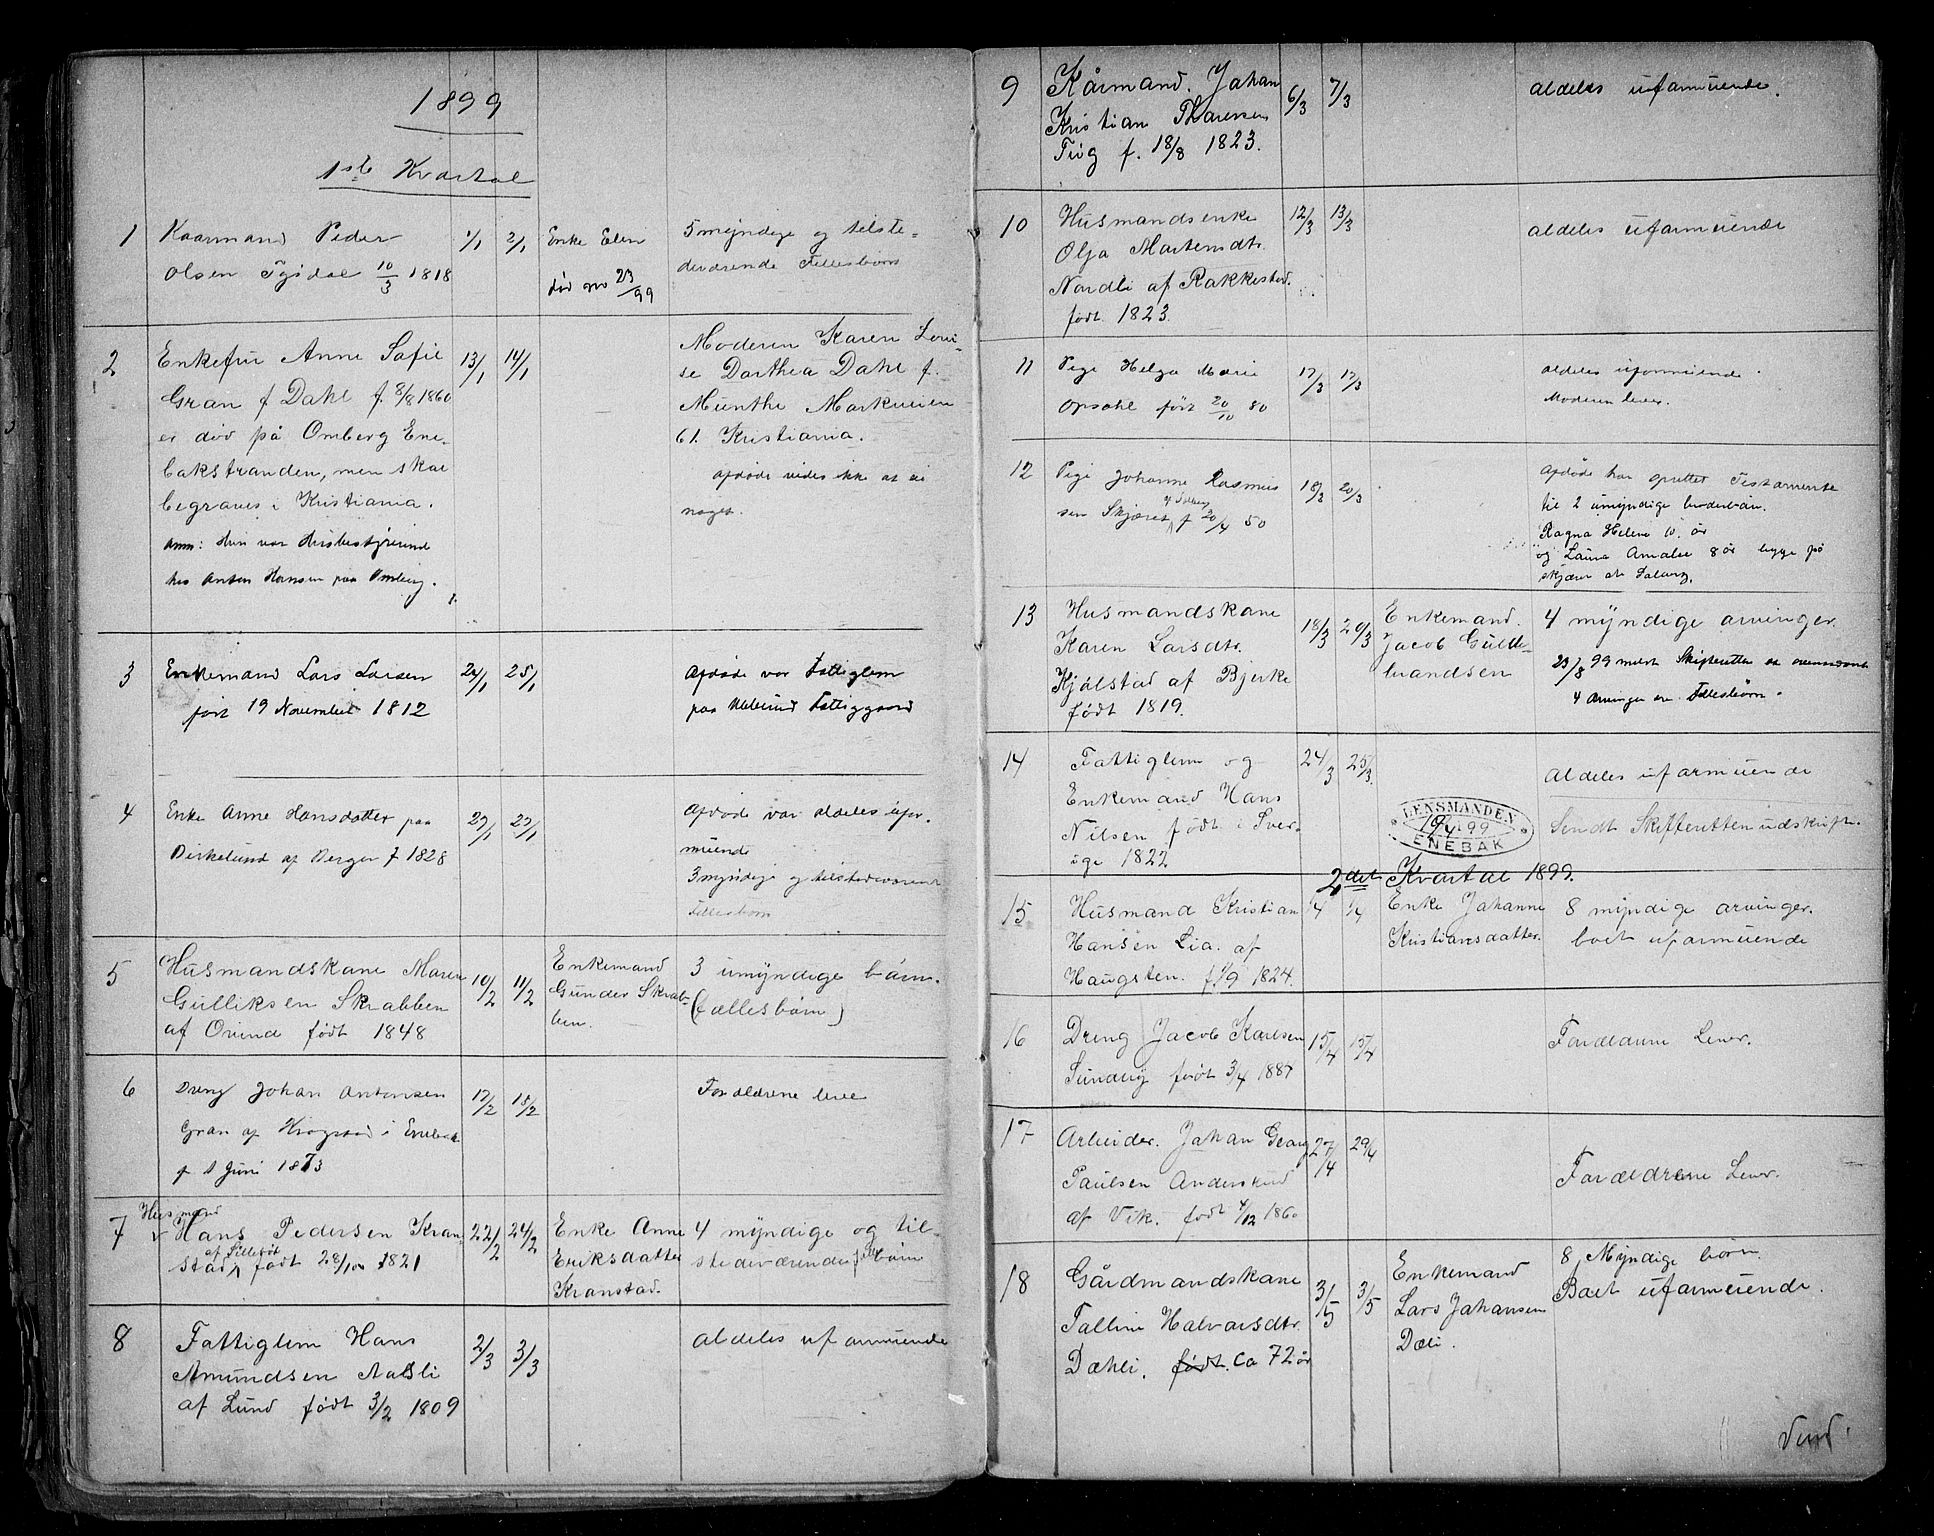 1899
1ste Kvartal
1 Kaarmand Peder 1/1 2/1 Enke Elen 5 myndige og tilste-
Olsen 10/3 1818 død 23/99 deværende Fellesbørn
2 Enkefru Anne Sofie 13/1 14/1 Moderen Karen Loui-
Gran f. Dahl f. 8/8 1860 se Dorthea Dahl f.
er død på Omberg Ene- Munthe Markveien
bakstranden, men skal 61. Kristiania.
begraves i Kristiania. afdøde vides ikke at ei
Anm: Hun var Husbestyrerinde noget.
hos Anton Hansen paa Omberg.
3 Enkemand Lars Larsen 24/1 25/1 Afdøde var Fattiglem
født 19 November 1812 paa Fattiggaard
4 Enke Anne Hansdatter paa 27/1 27/1 Afdøde var aldeles ufor-
Birkelund af Berger f 1828 muende
3 myndige og tilstedeværende
Fellesbørn
5 Husmandskone Maren 10/2 11/2 Enkemand 3 umyndige børn.
Gulliksen Skrabben Gunder Skrab- (fællesbørn)
af Ovind født 1848 ben.
6 Dreng Johan Antonsen 17/2 18/2 Forældrene lever
Gran af Krogstad i Enebak
f 1 Juni 1873
Husmand
7 Hans Pedersen Kran- 22/2 24/2 Enke Anne 4 myndige og til-
stad født 28/10 1821 Eriksdatter stedeværende børn
Kranstad.
8 Fattiglem Hans 2/3 3/3 aldeles uformuende
Amundsen Aasli
af Lund født 3/2 1809
9 Kårmand. Johan 6/3 7/3 aldeles uformuende.
Kristian Thoresen
f. 18/8 1823.
10 Husmandsenke 12/3 13/3 aldeles uformuende
Olja Martensdtr.
Nordli af Rakkestad.
født. 1823.
11 Pige Helga Marie 17/3 17/3 aldeles uformuende.
Opsahl født 20/10 80 Moderen lever.
12 Pige Johanne Rasmus 18/3 20/3 Afdøde har oprettet Testamente
sen Skjæret f 20/4 50 til 2 umyndige broderbørn.
Ragna Helene 10 år
og Laura Amalie 8 år begge på
Skjæret
13 Husmandskone 18/3 20/3 Enkemand. 4 myndige arvinger.
Karen Larsdtr. Jacob Gulde- 23/3 99 meldt Skifteretten at
Kjølstad af Bjerke brandsen 4 Arvinger er Fellesbørn.
født 1819.
14 Fattiglem og 24/3 25/3 aldeles uformuende
Enkemand Hans Sendt Skifteretten udskrift.
Nilsen født i Sver-
ige 1822
LENSMANDEN
19/4 99
ENEBAK
2det Kvartal 1899.
15 Husmand Kristian 1/4 1/4 Enke Johanne 8 myndige arvinger.
Hansen Lia. af Kristiansdatter. boet uformuende
Haugsten. f. 1/9 1824.
16 Dreng Jacob Karlsen 15/4 15/4 Forældrene Lever.
Sundby født 3/4 1887
17 Arbeider. Johan Georg 27/4 29/4 Forældrene Lever.
Paulsen Anderskud
af Vik. født 4/12 1860
18 Gårdmandskone 3/5 3/5 Enkemand 8 Myndige børn.
Halvorsdtr. Lars Johansen Boet uformuende.
Dæhli. født. ca 72 år Dæli.
Vend